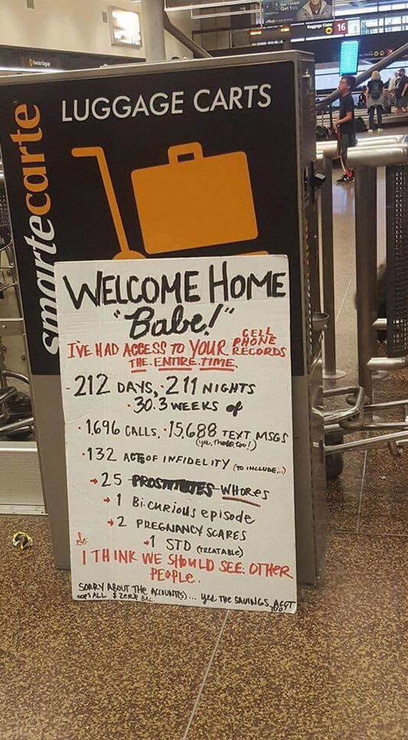 LUGGAGE CARTS
smartecarte
Baggage Claim 16
WELCOME HOME
"Babe!"
I'VE HAD ACCESS TO YOUR CELL PHONE RECORDS
THE ENTIRE TIME.
-212 DAYS, · 211 NIGHTS
· 30.3 WEEKS of
· 1,696 CALLS, · 15,688 TEXT MSGS
(yes, those too!)
· 132 ACTS OF INFIDELITY (TO INCLUDE...)
→ 25 PROSTITUTES WHORES
→ 1 Bi-curious episode
→ 2 PREGNANCY SCARES
→ 1 STD (TREATABLE)
So
I THINK WE SHOULD SEE OTHER
PEOPLE.
SORRY ABOUT THE ACCOUNT(S)... yes THE SAVINGS ACCT
oops ALL $ ZERO BAL. TOO!